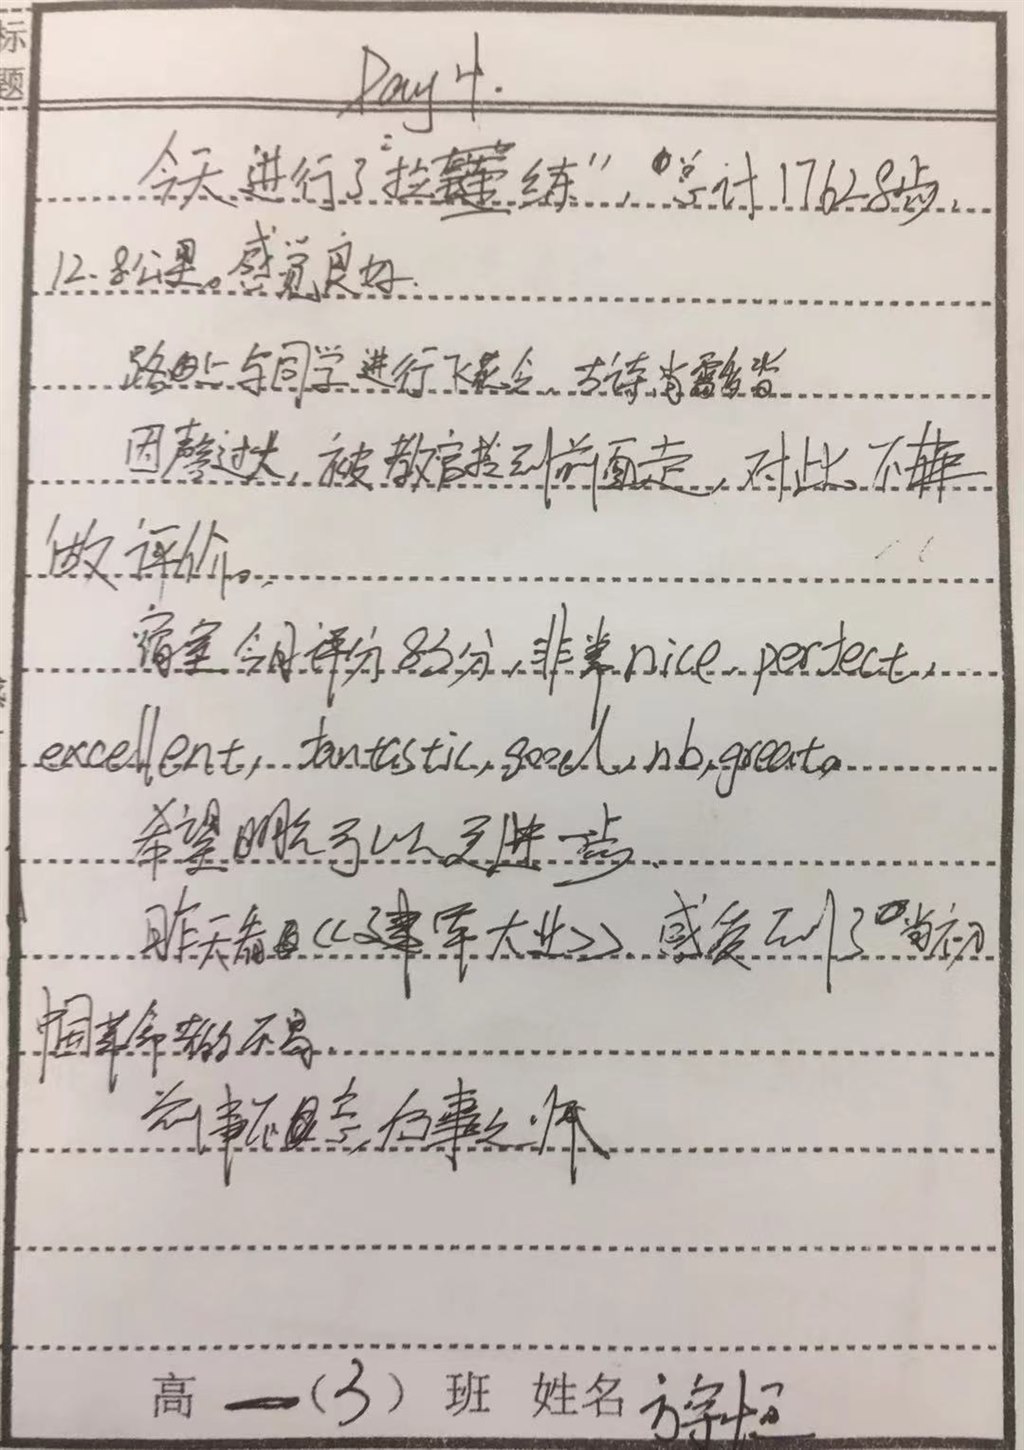 标题
Day 4.
今天进行了"拉练",总计17628步,
12.8公里。感觉良好.
路上与同学进行飞花令,古诗
因声过大,被教官拉到前面走,对此不
做评价。
宿室今日评分83分,非常nice,perfect,
excellent,fantastic,good,nb,great。
希望明天可以更进一步.
昨天看《建军大业》感受到了当初
中国革命的不易.
前事不忘,后事之师
高一(3)班 姓名方宇恒